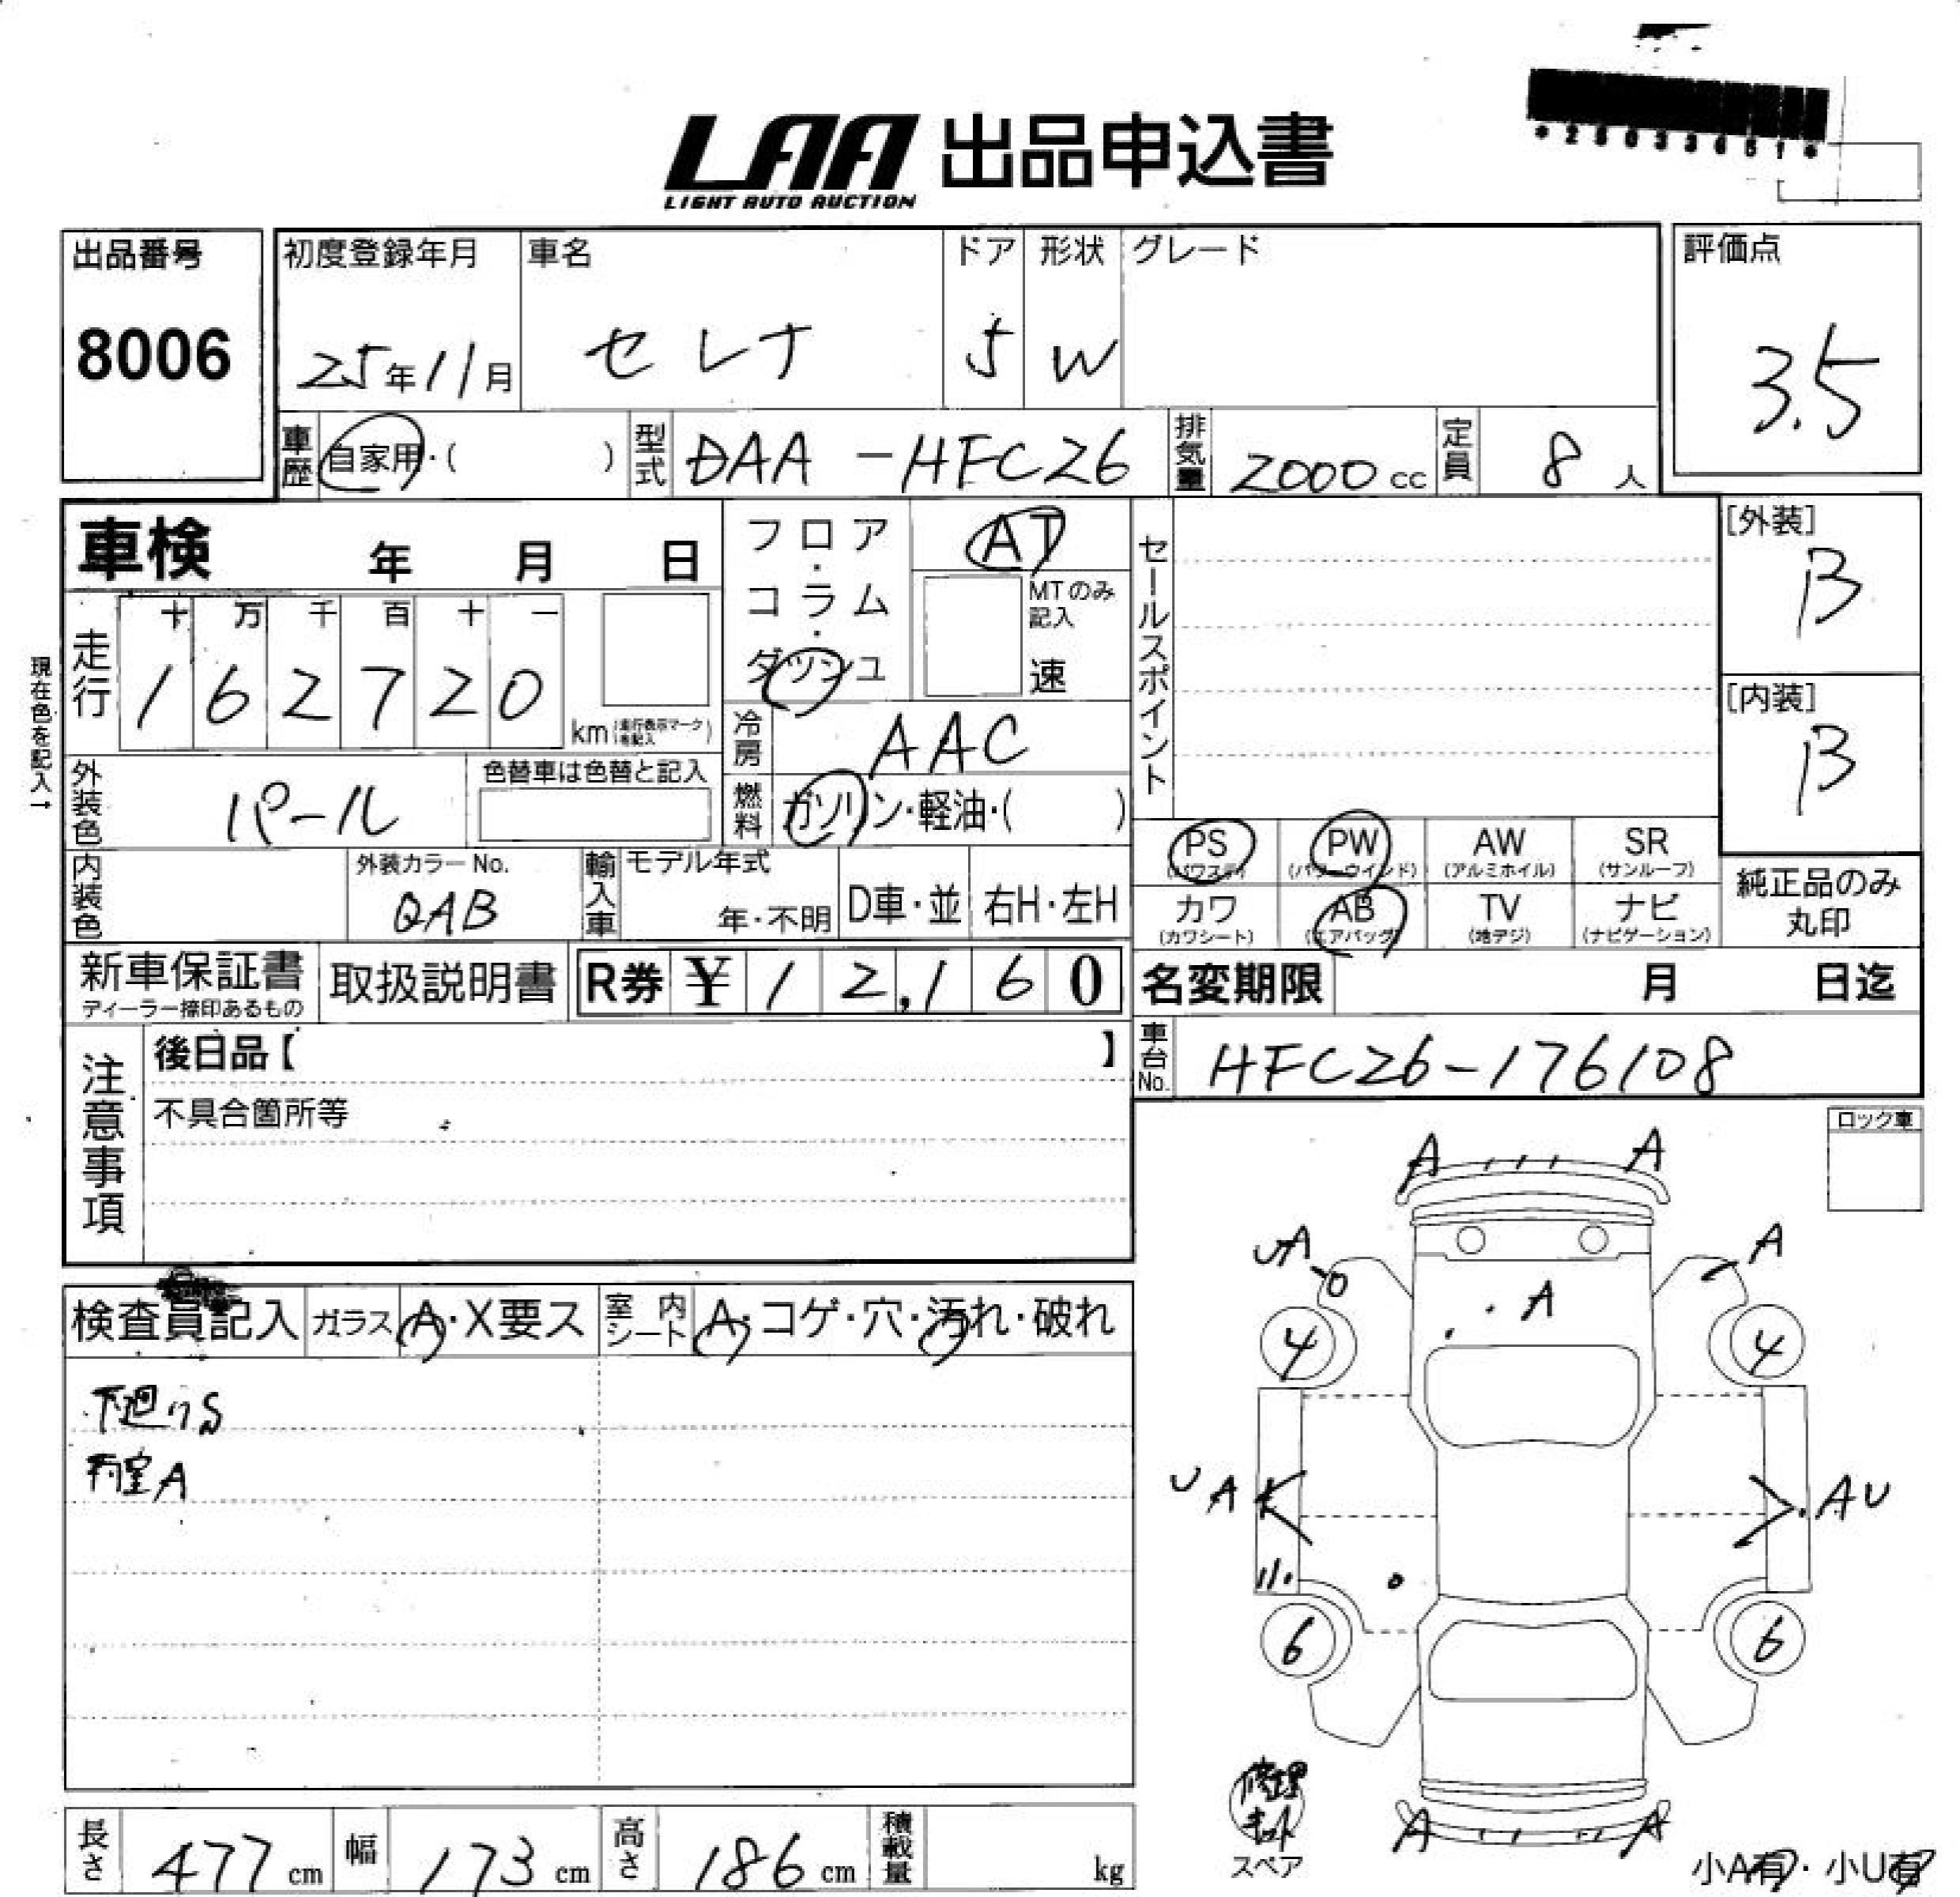 LAA 出品申込書
LIGHT AUTO AUCTION
出品番号 初度登録年月 車名 ドア 形状 グレード 評価点
8006 25年11月 セレナ 5 W 3.5
車歴 自家用・( ) 型式 DAA-HFC26 排気量 2000cc 定員 8人
車検 年 月 日
フロア・コラム・ダッシュ
AT
MTのみ記入
速
セールスポイント
[外装]
B
現在色を記入→
走行 十 万 千 百 十 一
1 6 2 7 2 0 km
[内装]
B
冷房 AAC
外装色 パール 色替車は色替と記入
燃料 ガソリン・軽油・( )
PS (パワステ) PW (パワーウインド) AW (アルミホイル) SR (サンルーフ)
内装色 外装カラーNo. QAB
輸入車 モデル年式 年・不明 D車・並 右H・左H
カワ (カワシート) AB (エアバッグ) TV (地デジ) ナビ (ナビゲーション)
純正品のみ
丸印
新車保証書 取扱説明書 R券 ¥12,160 名変期限 月 日迄
ディーラー捺印あるもの
注意事項
後日品【 】
車台No. HFC26-176108
不具合箇所等
ロック車
A A
UA A
A
検査員記入 ガラス A・X要ス 室内シート A・コゲ・穴・汚れ・破れ
4 4
下廻りS
内室A
UA AU
6 6
修理
キット
スペア
A A
小A有・小U有
長さ 477cm 幅 173cm 高さ 186cm 積載量 kg